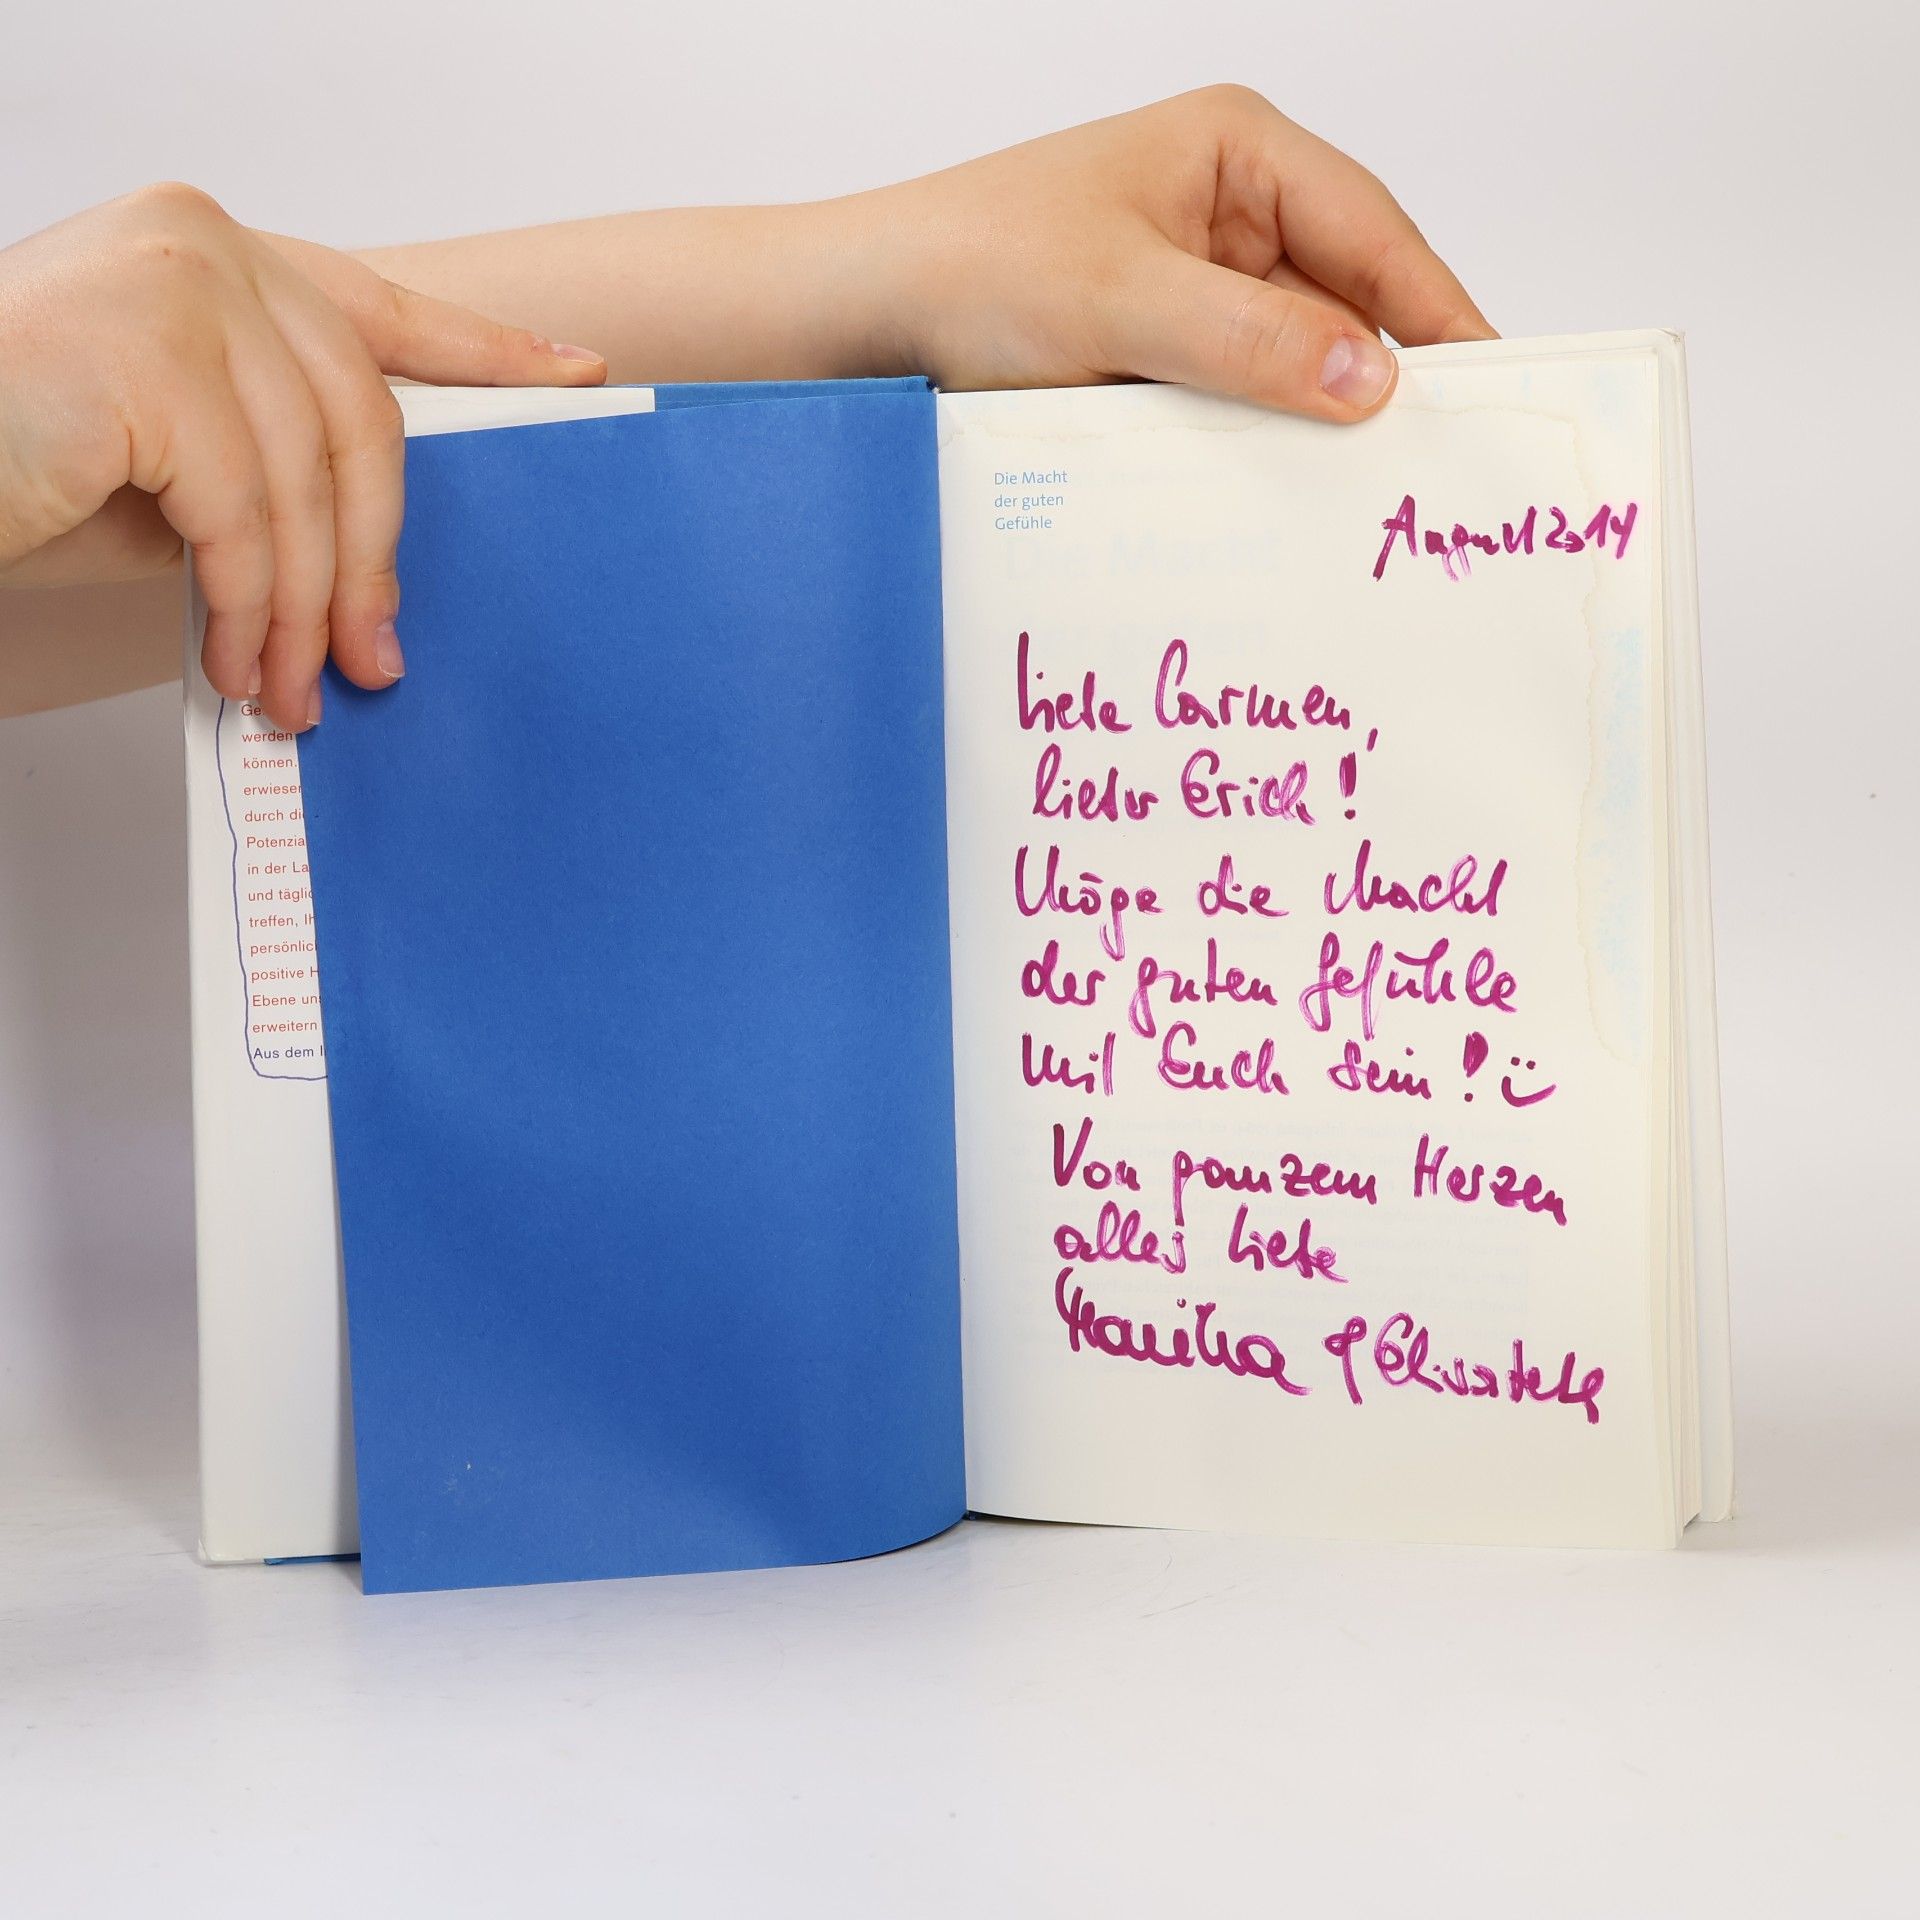 Ge
werden
können.
erwiesen
durch di
Potenzia
in der La
und täglic
treffen, Ih
persönlic
positive H
Ebene uns
erweitern
Aus dem I
Die Macht
der guten
Gefühle
August 2014
Liebe Carmen,
lieber Erich!
Möge die Macht
der guten Gefühle
mit Euch sein! ü
Von ganzem Herzen
alles Liebe
Monika &